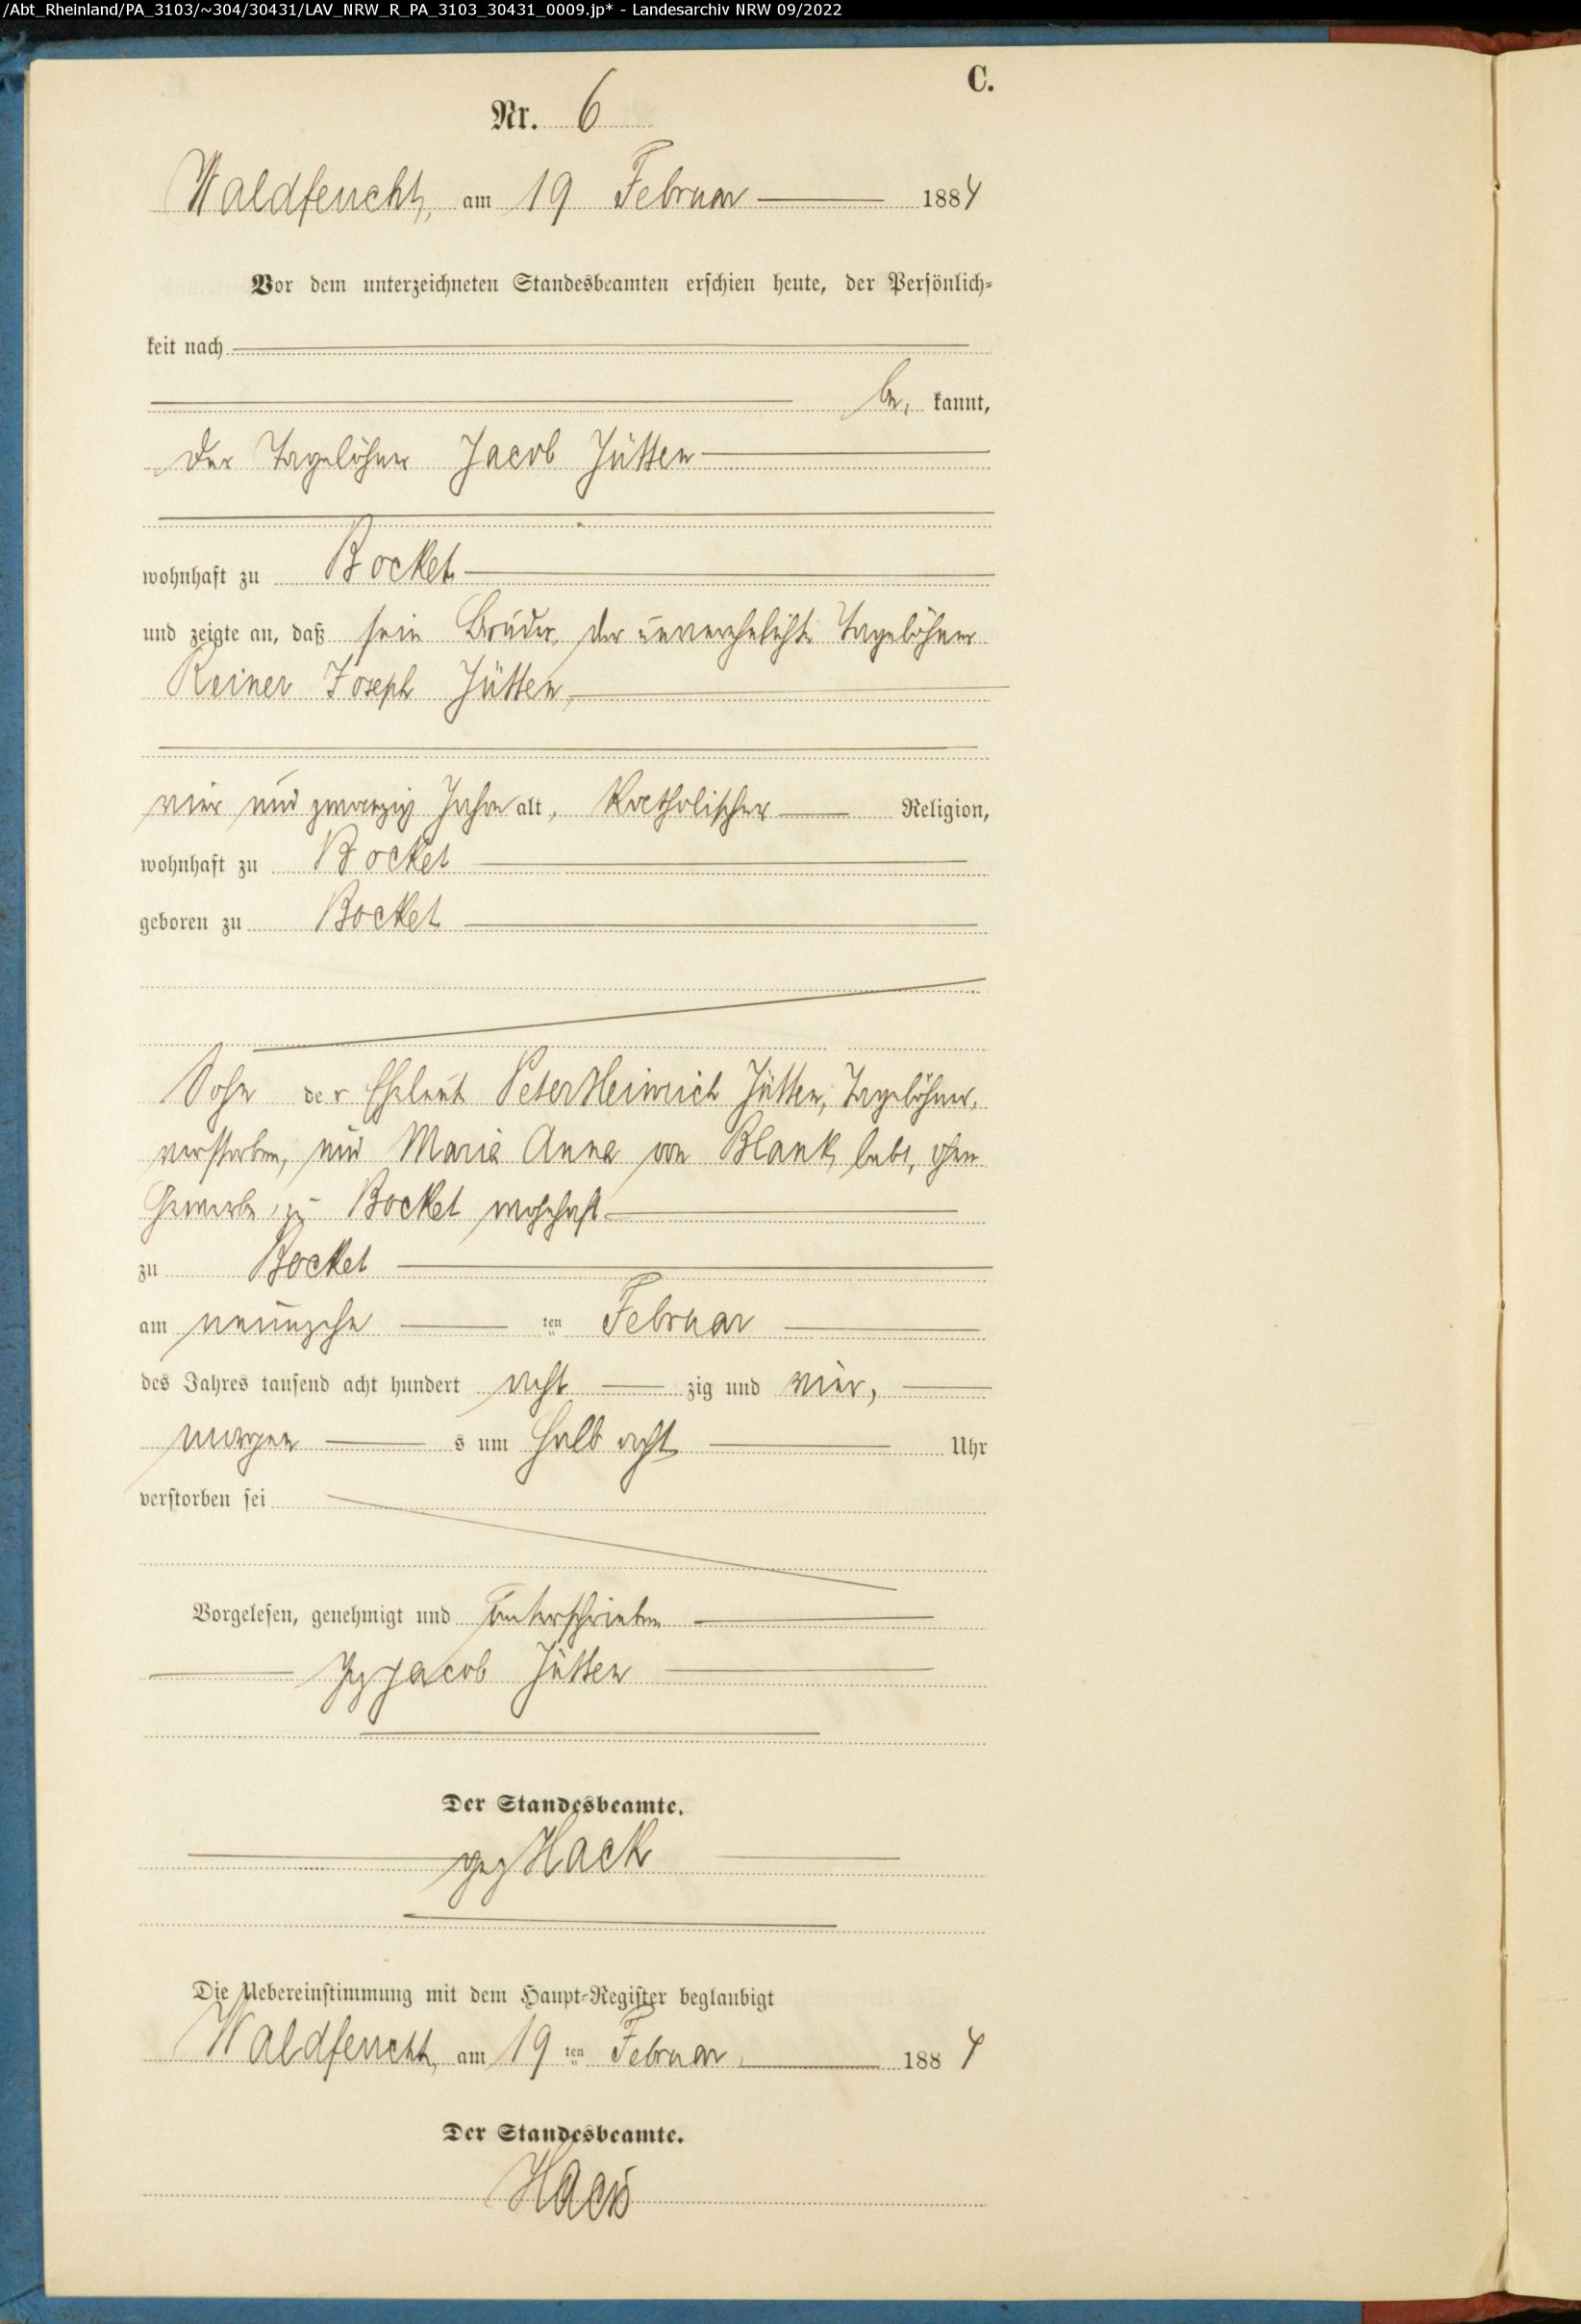 /Abt_Rheinland/PA_3103/~304/30431/LAV_NRW_R_PA_3103_30431_0009.jp* - Landesarchiv NRW 09/2022
C.
Nr. 6
Waldfeucht, am 19 Februar 1884
Vor dem unterzeichneten Standesbeamten erschien heute, der Persönlich-
keit nach
be, kannt,
der Tagelöhner Jacob Jütten
wohnhaft zu Bocket
und zeigte an, daß sein Bruder, der unverehelichte Tagelöhner
Reiner Joseph Jütten,
vier und zwanzig Jahre alt, Katholischer Religion,
wohnhaft zu Bocket
geboren zu Bocket
Sohn der Eheleute Peter Heinrich Jütten, Tagelöhner,
verstorben, und Maria Anna von Blank, lebt, ohne
Gewerbe, zu Bocket wohnhaft
zu Bocket
am neunzehn ten Februar
des Jahres tausend acht hundert acht zig und vier,
morgen s um halb acht Uhr
verstorben sei
Vorgelesen, genehmigt und unterschrieben
gez Jacob Jütten
Der Standesbeamte.
gez Hack
Die Uebereinstimmung mit dem Haupt-Register beglaubigt
Waldfeucht, am 19 ten Februar 1884
Der Standesbeamte.
Hack